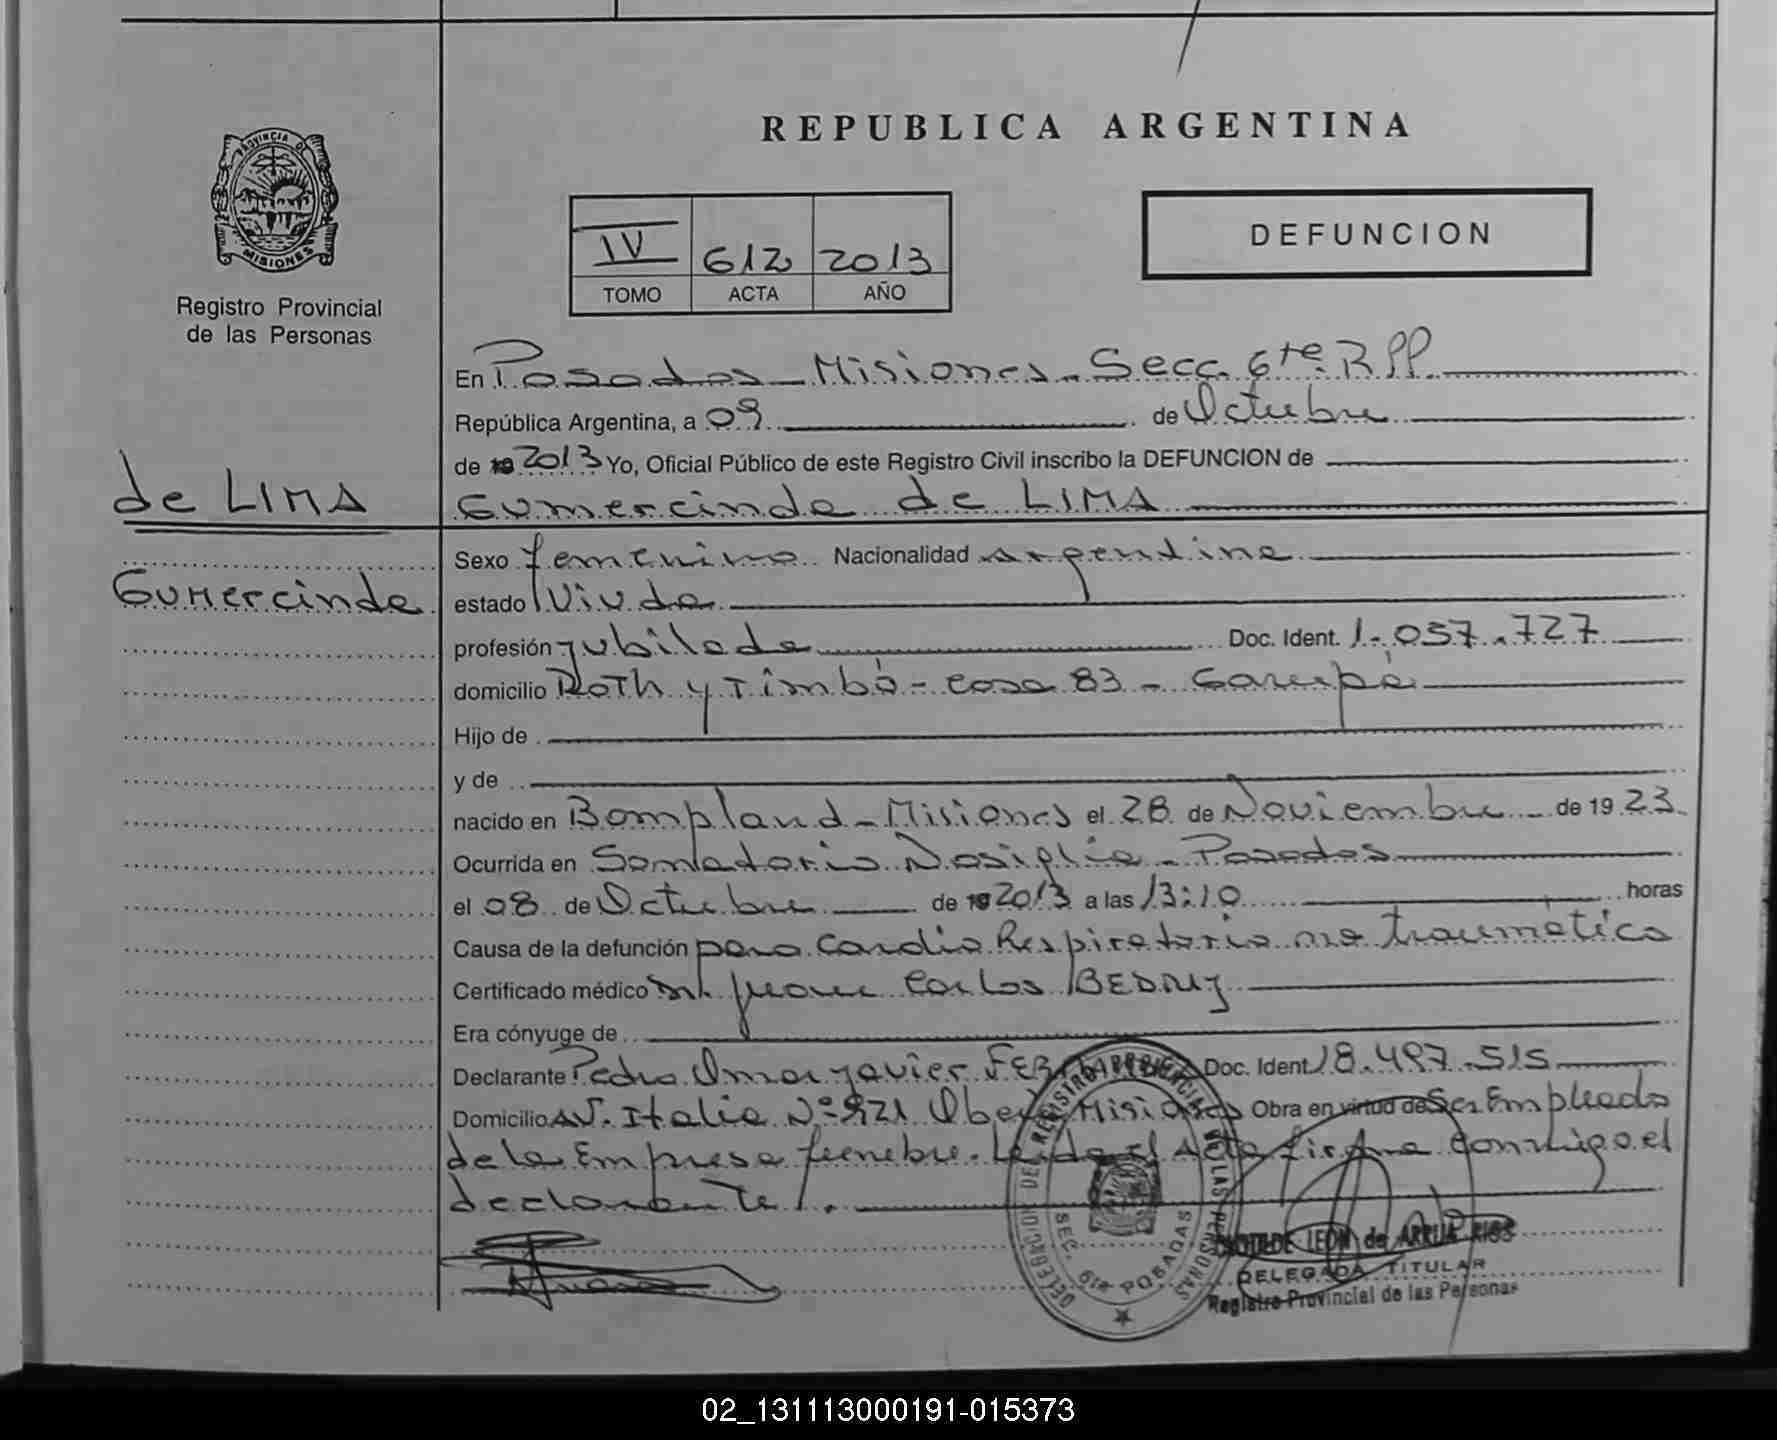 REPUBLICA ARGENTINA
PROVINCIA DE
MISIONES
Registro Provincial
de las Personas
IV 612 2013
TOMO ACTA AÑO
DEFUNCION
En Posadas - Misiones - Secc. 6ta. RPP.
República Argentina, a 09 de Octubre
de 2013 Yo, Oficial Público de este Registro Civil inscribo la DEFUNCION de
Gumercinda de LIMA
de LIMA
Gumercinda
Sexo femenino Nacionalidad argentina
estado Viuda
profesión jubilada Doc. Ident. 1.057.727
domicilio Roth y Timbó - casa 83 - Garupá
Hijo de
y de
nacido en Bompland - Misiones el 28 de Noviembre de 1923
Ocurrida en Sanatorio Nosiglia - Posadas
el 08 de Octubre de 2013 a las 13:10 horas
Causa de la defunción paro Cardio Respiratorio no traumático
Certificado médico Dr. Juan Carlos
Era cónyuge de
Declarante Pedro Omar Javier Doc. Ident 18.497.515
Domicilio AV. Italia Nº 921 Oberá Misiones Obra en virtud de Ser Empleado
de la Empresa fúnebre. Leida el Acta firma conmigo el
declarante.
DELEGACION DEL REGISTRO PROVINCIAL DE LAS PERSONAS
SEC. 6ta POSADAS
CLOTILDE LEON de ARRUA RIOS
DELEGADA TITULAR
Registro Provincial de las Personas
02_131113000191-015373